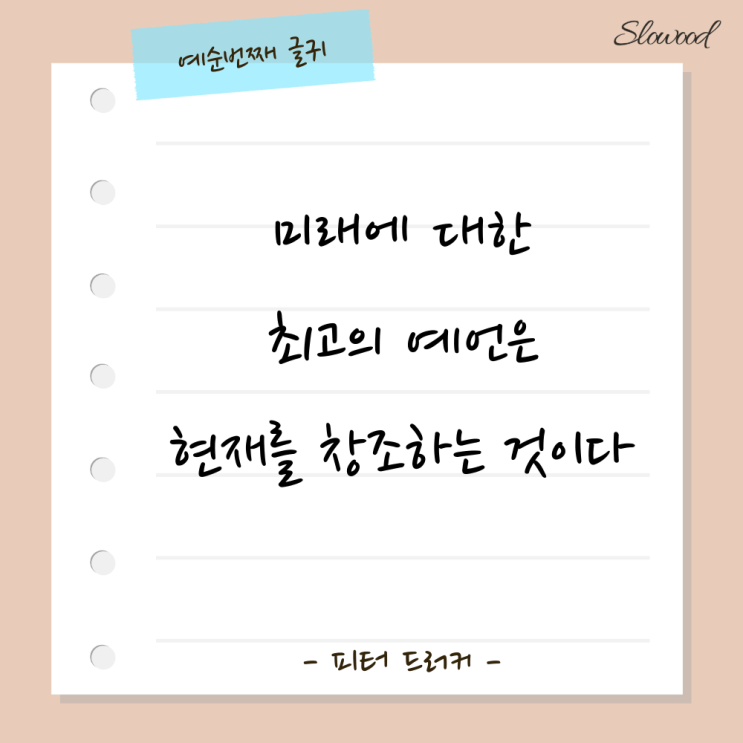 예순번째 글귀
Slowood
미래에 대한
최고의 예언은
현재를 창조하는 것이다
- 피터 드러커 -